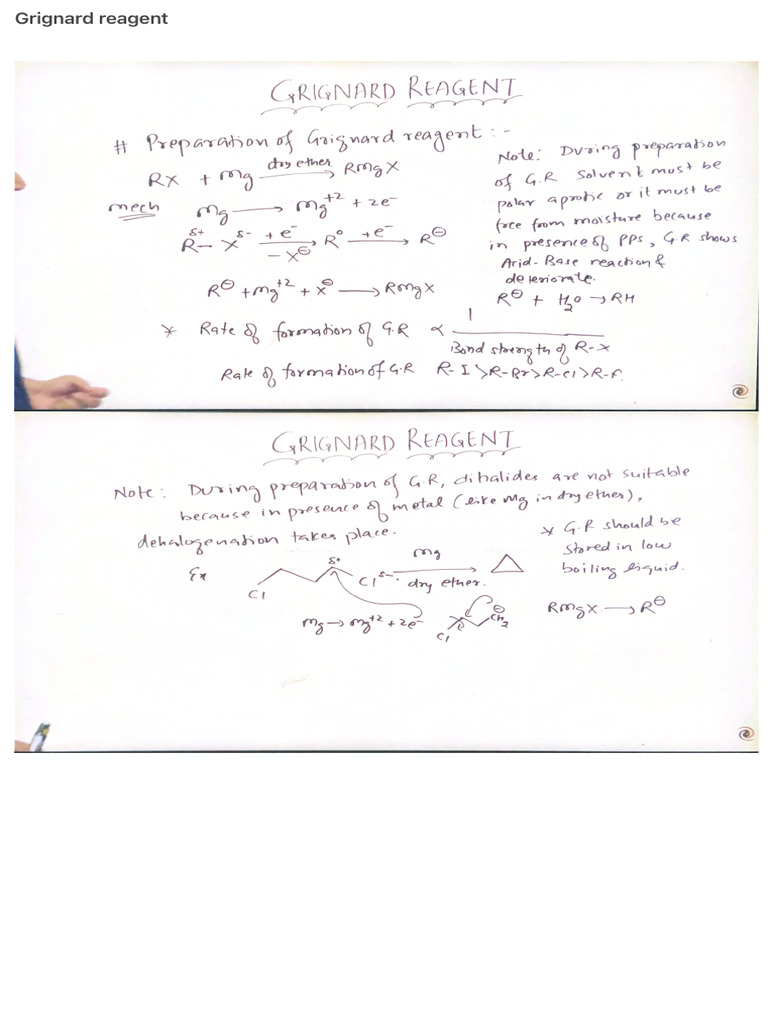 Grignard reagent
GRIGNARD REAGENT
# Preparation of Grignard reagent : -
RX + Mg dry ether → RMgX
mech Mg → Mg+2 + 2e-
δ+ δ-
R – X + e- → - X⊖ R° +e- → R⊖
R⊖ + Mg+2 + X⊖ → RMgX
* Rate of formation of G.R ∝ 1
Bond strength of R-X
Rate of formation of G.R R-I > R-Br > R-Cl > R-F.
Note: During preparation
of G.R Solvent must be
polar aprotic or it must be
free from moisture because
in presence of PPS, G.R shows
Acid-Base reaction &
deteriorate.
R⊖ + H2O → RH
GRIGNARD REAGENT
Note: During preparation of G.R, dihalides are not suitable
because in presence of metal (like Mg in dry ether),
dehalogenation takes place.
* G.R should be
stored in low
boiling liquid.
RMgX → R⊖
Ex Cl δ+ Clδ-. Mg → dry ether.
Mg → Mg+2 + 2e-
Cl ⊖ CH2